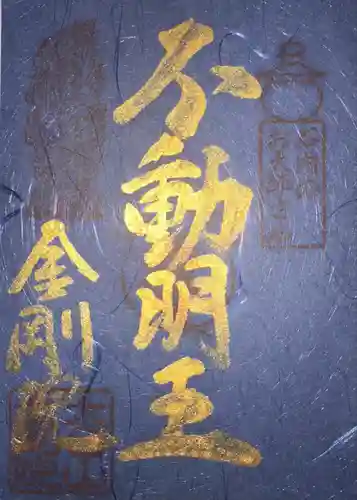 不動明王
金剛院